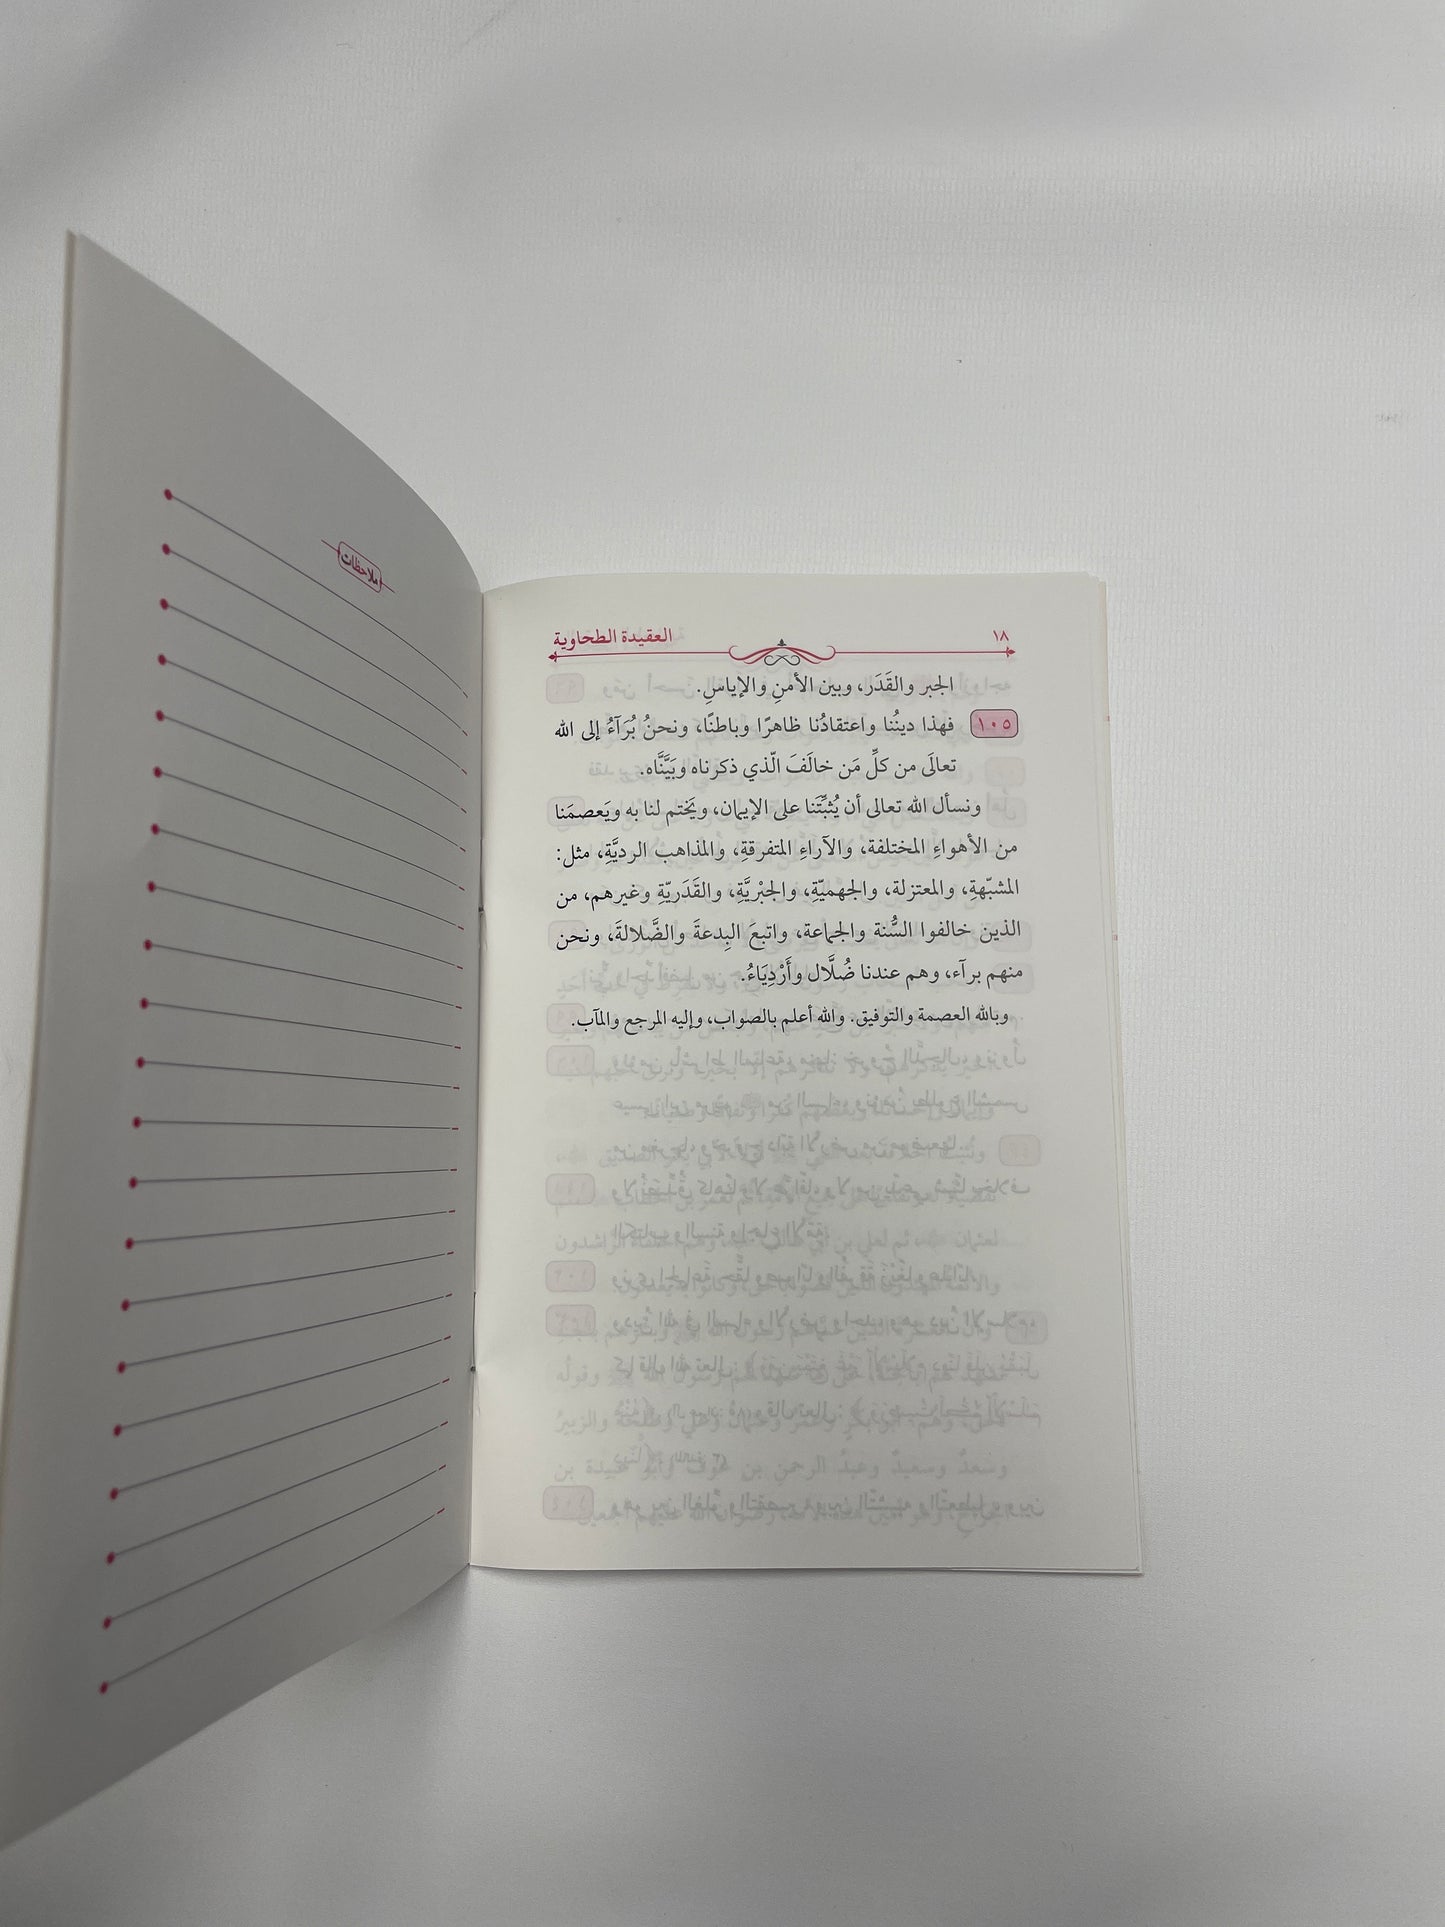 ١٨
العقيدة الطحاوية
الجبر والقَدَر، وبين الأمنِ والإياسِ.
١٠٥ فهذا دينُنا واعتقادُنا ظاهرًا وباطنًا، ونحنُ بُرَآءُ إلى الله
تعالَى من كلِّ مَن خالَفَ الّذي ذكرناه وبَيَّنَّاه.
ونسأل الله تعالى أن يُثبِّتَنا على الإيمان، ويَختم لنا به ويَعصمَنا
من الأهواءِ المختلفة، والآراءِ المتفرقةِ، والمذاهب الرديَّةِ، مثل:
المشبّهةِ، والمعتزلة، والجهميّةِ، والجبْريَّةِ، والقَدَريّةِ وغيرهم، من
الذين خالفوا السُّنة والجماعة، واتبعَ البِدعةَ والضَّلالةَ، ونحن
منهم برآء، وهم عندنا ضُلَّال وأَرْدِيَاءُ.
وبالله العصمة والتوفيق. والله أعلم بالصواب، وإليه المرجع والمآب.
ملاحظات